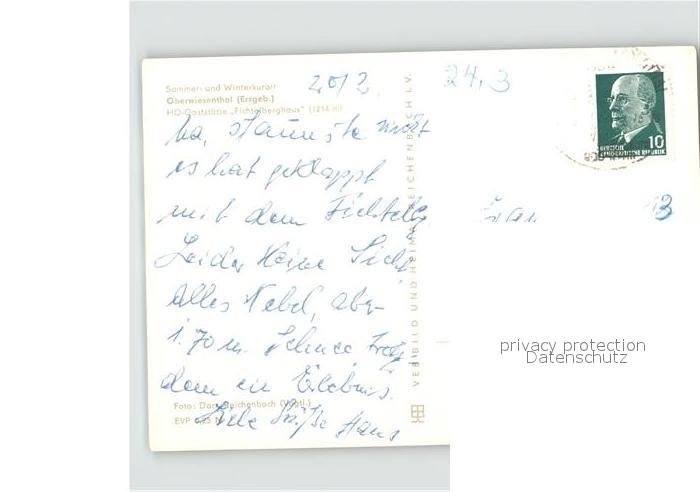 Sommer- und Winterkurort
Oberwiesenthal (Erzgeb.)
HO-Gaststätte "Fichtelberghaus" (1214 m)
24.3
Na, staunste nicht
es hat geklappt
mit dem Fichtelbg
Leider keine Sicht
alles Nebel, aber
1.70 m Schnee Trotz
dem ein Erlebnis.
Liebe Grüße Hans
Foto: Darr, Reichenbach (Vogtl.)
EVP 0,25
VEB BILD UND HEIMAT REICHENBACH I. V.
Frau
10
DEUTSCHE
DEMOKRATISCHE REPUBLIK
privacy protection
Datenschutz